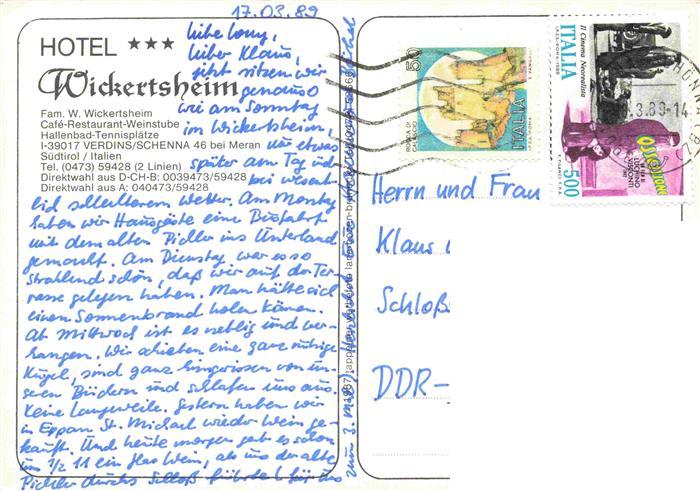 17.03.89
HOTEL ★★★
Wickertsheim
Fam. W. Wickertsheim
Café-Restaurant-Weinstube
Hallenbad-Tennisplätze
I-39017 VERDINS/SCHENNA 46 bei Meran
Südtirol / Italien
Tel. (0473) 59428 (2 Linien)
Direktwahl aus D-CH-B: 0039473/59428
Direktwahl aus A: 040473/59428
Liebe Conny,
lieber Klaus,
jetzt sitzen wir
genauso
wie am Sonntag
im Wickertsheim,
nur etwas
später am Tag und
bei wesent-
lich schlechterem Wetter. Am Montag
haben wir Hausgäste eine Busfahrt
mit dem alten Pichler ins Unterland
gemacht. Am Dienstag war es so
strahlend schön, daß wir auf der Ter-
rasse gelegen haben. Man hätte sich
einen Sonnenbrand holen können.
Ab Mittwoch ist es neblig und ver-
hangen. Wir schieben eine ganz ruhige
Kugel, sind ganz hingerissen von un-
seren Büchern und schlafen uns aus.
Keine Langeweile. Gestern haben wir
in Eppan St. Michael wieder Wein ge-
kauft. Und heute morgen gab es schon
um 1/2 11 ein Glas Wein, als uns der alte
Pichler durchs Schloß führte
zum 3. Mal
50
ROCCA DI
CALASCIO
ITALIA
Il Cinema Neorealista
ITALIA
OSSESSIONE
LUCHINO
VISCONTI
500
3.89-14
Herrn und Frau
Klaus
Schloß
DDR-